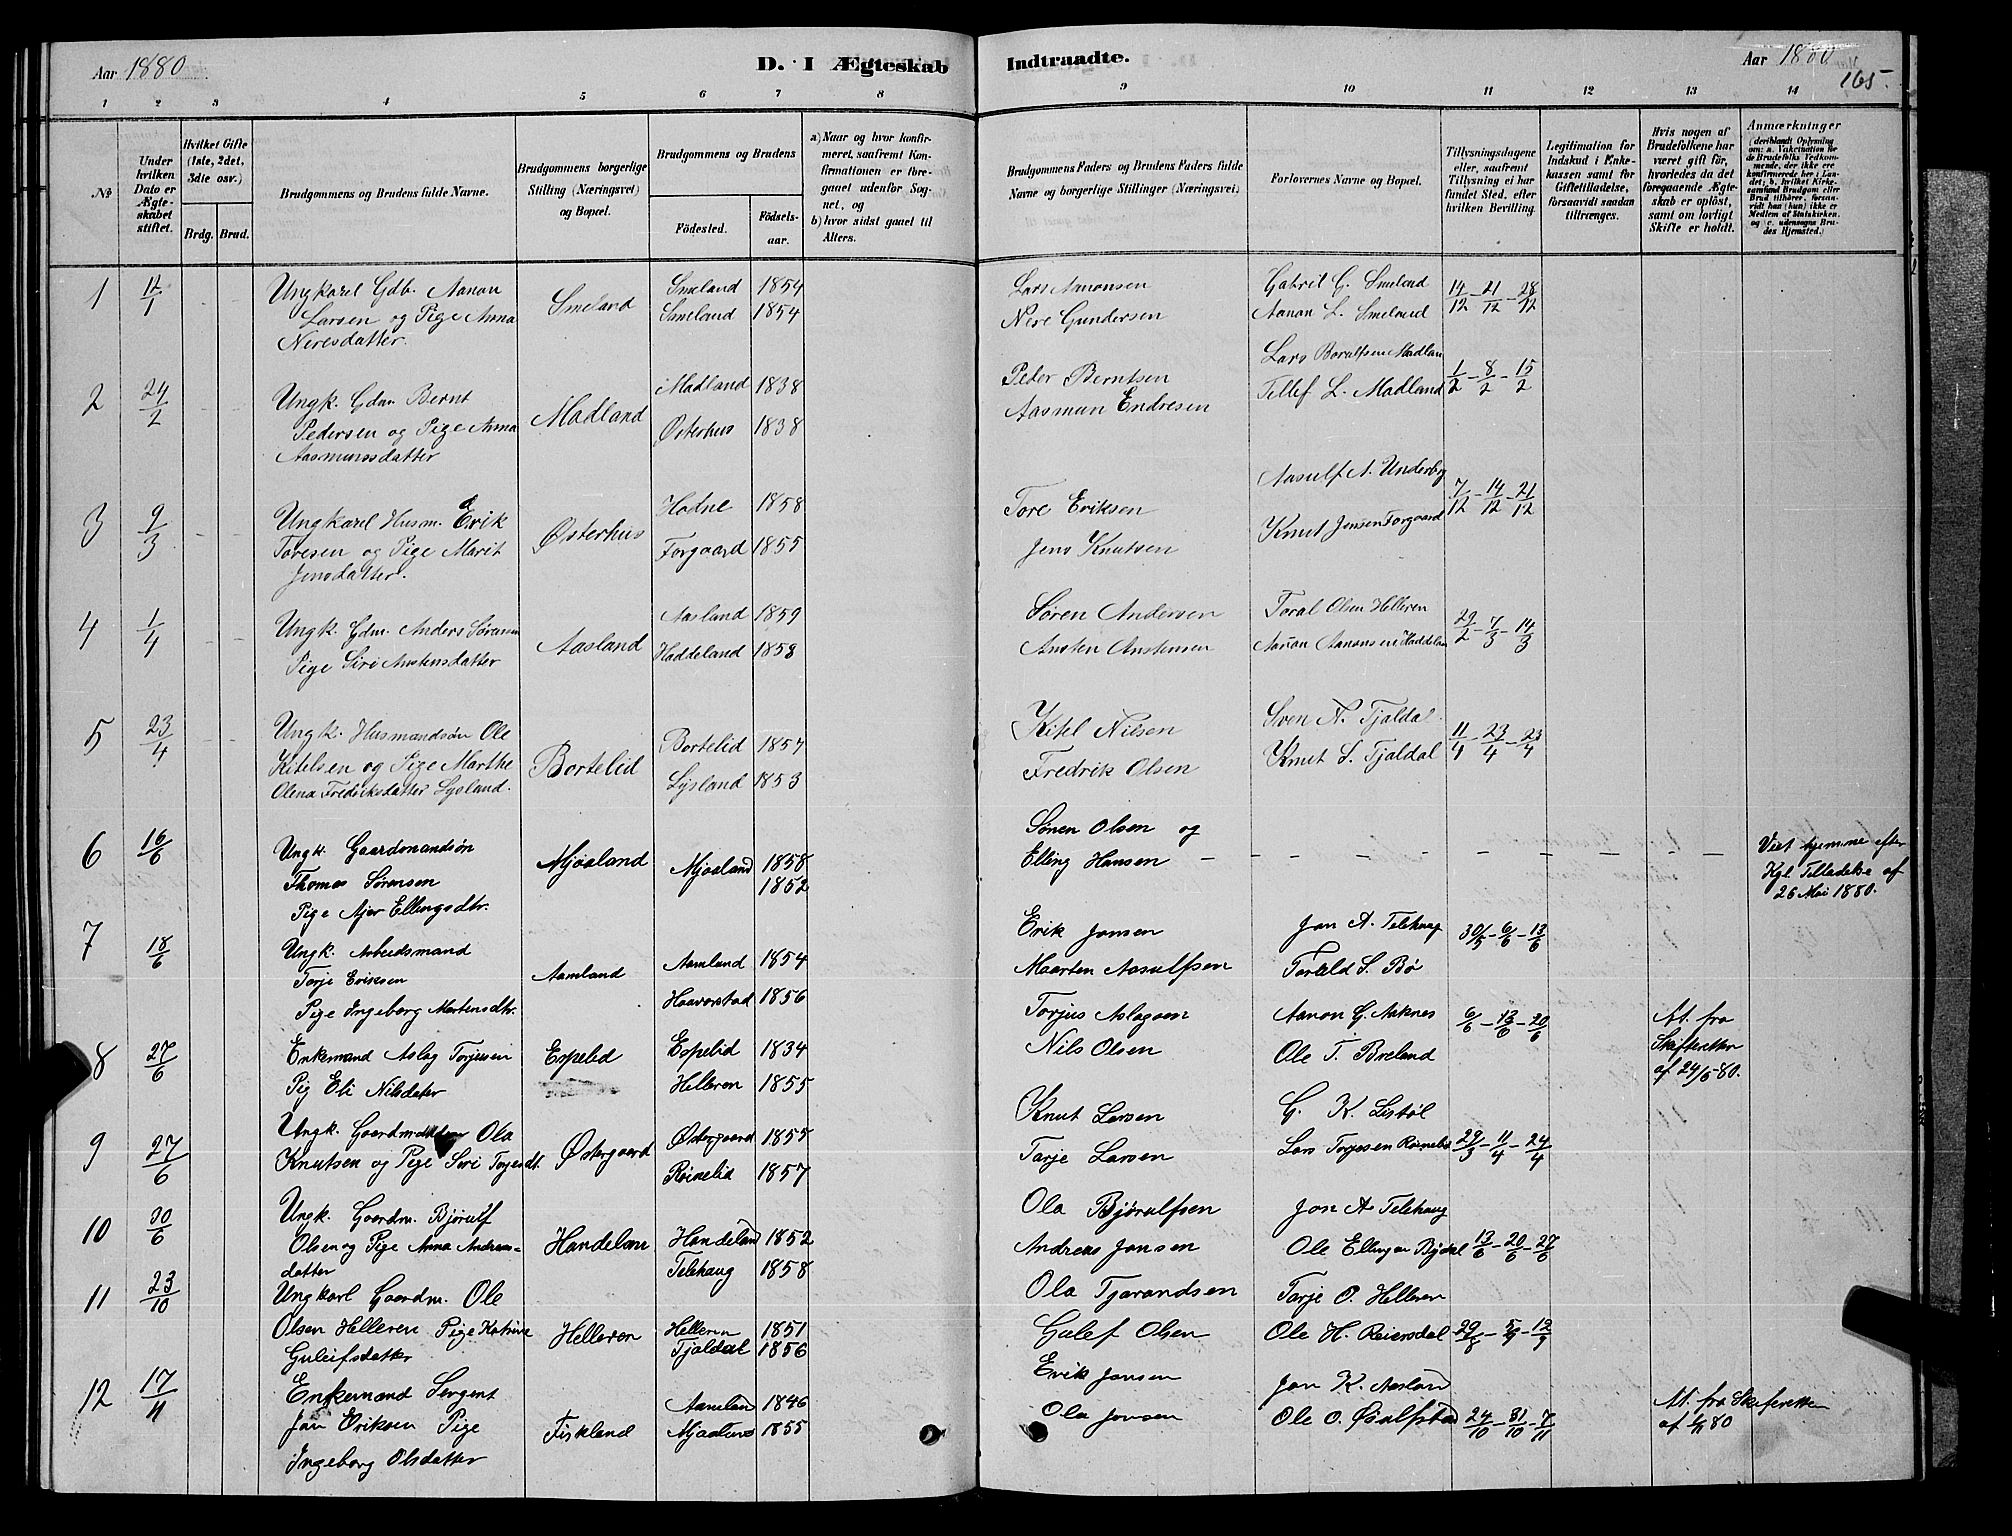 Aar 1880
D. I Ægteskab Indtraadte.
Aar 1880
165.
1 2 3 4 5 6 7 8 9 10 11 12 13 14
No
Under hvilken Dato er Ægteskabet stiftet.
Hvilket Gifte (1ste, 2det, 3die osv.)
Brdg. Brud.
Brudgommens og Brudens fulde Navne.
Brudgommens borgerlige Stilling (Næringsvei) og Bopæl.
Brudgommens og Brudens
Fødested.
Fødselsaar.
a) Naar og hvor konfirmeret, saafremt Konfirmationen er foregaaet udenfor Sognet, og
b) hvor sidst gaaet til Alters.
Brudgommens Faders og Brudens Faders fulde Navne og borgerlige Stillinger (Næringsvei)
Forlovernes Navne og Bopæl.
Tillysningsdagene eller, saafremt Tillysning ei har fundet Sted, efter hvilken Bevilling.
Legitimation for Indskud i Enkekassen samt for Giftetilladelse, forsaavidt saadan tiltrænges.
Hvis nogen af Brudefolkene har været gift før, hvorledes da det foregaaende Ægteskab er opløst, samt om lovligt Skifte er holdt.
Anmærkninger (deriblandt Oplysning om: a. Vakcination for de Brudefolks Vedkommende, der ikke ere konfirmerede her i Landet; b. hvilket Kirkesamfund Brudgom eller Brud tilhører, forsaavidt han (hun) ikke er Medlem af Statskirken, og c. udensogns Brudes Hjemsted.)
1 12/1 Ungkarel Gdb. Aanon
Larsen og Pige Anna
Neresdatter.
Smeland
Smeland 1854
Smeland 1854
Lars Aanonsen
Nere Gundersen
Gabril G. Smeland
Aanon L. Smeland
14/12 - 21/12 - 28/12
2 24/2 Ungk. Gdm Bernt
Pedersen og Pige Anna
Aasmunsdatter
Madland
Madland 1838
Østerhus 1838
Peder Berntsen
Aasmun Endresen
Lars Borulfsen Madlan
Tellef L. Madland
1/2 - 8/2 - 15/2
3 9/3 Ungkarel Husm. Erik
Toresen og Pige Marit
Jensdatter.
Østerhus
Hodne 1858
Forgaard 1855
Tore Eriksen
Jens Knutsen
Aasulf A. Underby
Knut Jensen Forgaard
7/12 - 14/12 - 21/12
4 1/4 Ungk. Gdm. Anders Sørensen
Pige Siri Anstensdatter
Aasland
Aasland 1859
Haddeland 1858
Søren Andersen
Ansten Anstensen
Toral Olsen Helleren
Aanon Aanonsen Haddelan
29/2 - 7/3 - 14/3
5 23/4 Ungk. Husmandsøn Ole
Kitelsen og Pige Marthe
Olena Fredriksdatter Lysland.
Bortelid
Bortelid 1857
Lysland 1853
Kitel Nilsen
Fredrik Olsen
Sven N. Tjaldal
Knut S. Tjaldal
11/4 - 23/4 - 23/4
6 16/6 Ungk. Gaardmandsøn
Thomas Sørensen
Pige Ajer Ellingsdtr.
Mjaaland
Mjaaland 1858
1852
Sønen Olsen og
Elling Hansen
Viet hjemme efter
Kgl. Tilladelse af
26 Mai 1880.
7 18/6 Ungk. Arbeidsmand
Torje Eriksen
Pige Ingeborg Martensdtr.
Aamland
Aamland 1854
Haaverstad 1856
Erik Jonsen
Maarten Aasulfsen
Jon A. Telehaug
Torald S. Bø
30/5 - 6/6 - 13/6
8 27/6 Enkemand Aslag Torjusen
Pig Eli Nilsdatter
Espelid
Espelid 1834
Helleren 1855
Torjus Aslagsen
Nils Olsen
Aanon G. Aaknes
Ole T. Breland
6/6 - 13/6 - 20/6
At. fra
Skifteretten
af 24/5-80.
9 27/6 Ungk. Ola
Knutsen og Pige Siri Torjesdt.
Østergaard
Østergaard 1855
Røinelid 1857
Knut Larsen
Tarje Larsen
G. K. Listøl
Lars Torjesen Røinelid
29/3 - 11/4 - 24/4
10 30/6 Ungk. Gaardm. Bjørulf
Olsen og Pige Anna Andreas=
datter
Handelan
Handeland 1852
Telehaug 1858
Ola Bjørulfsen
Andreas Jonsen
Jon A Telehaug
Ole Ellingsen Bjdal
13/6 - 20/6 - 27/6
11 23/10 Ungkarl Gaardm. Ole
Olsen Helleren Pige Katrine
Guleifsdatter
Helleren
Helleren 1851
Tjaldal 1856
Ola Tjarandsen
Gulef Olsen
Tarje O. Helleren
Ole H. Reiersdal
29/8 - 5/9 - 12/9
12 17/11 Enkemand Sergent
Jon Eriksen Pige
Ingeborg Olsdatter
Fiskland
Aamlan 1846
Mjaaland 1855
Erik Jonsen
Ola Jonsen
Jon K. Aaslan
Ole O. Øsulfstad
24/10 - 31/10 - 7/11
At. fra Skifteretten
af 80